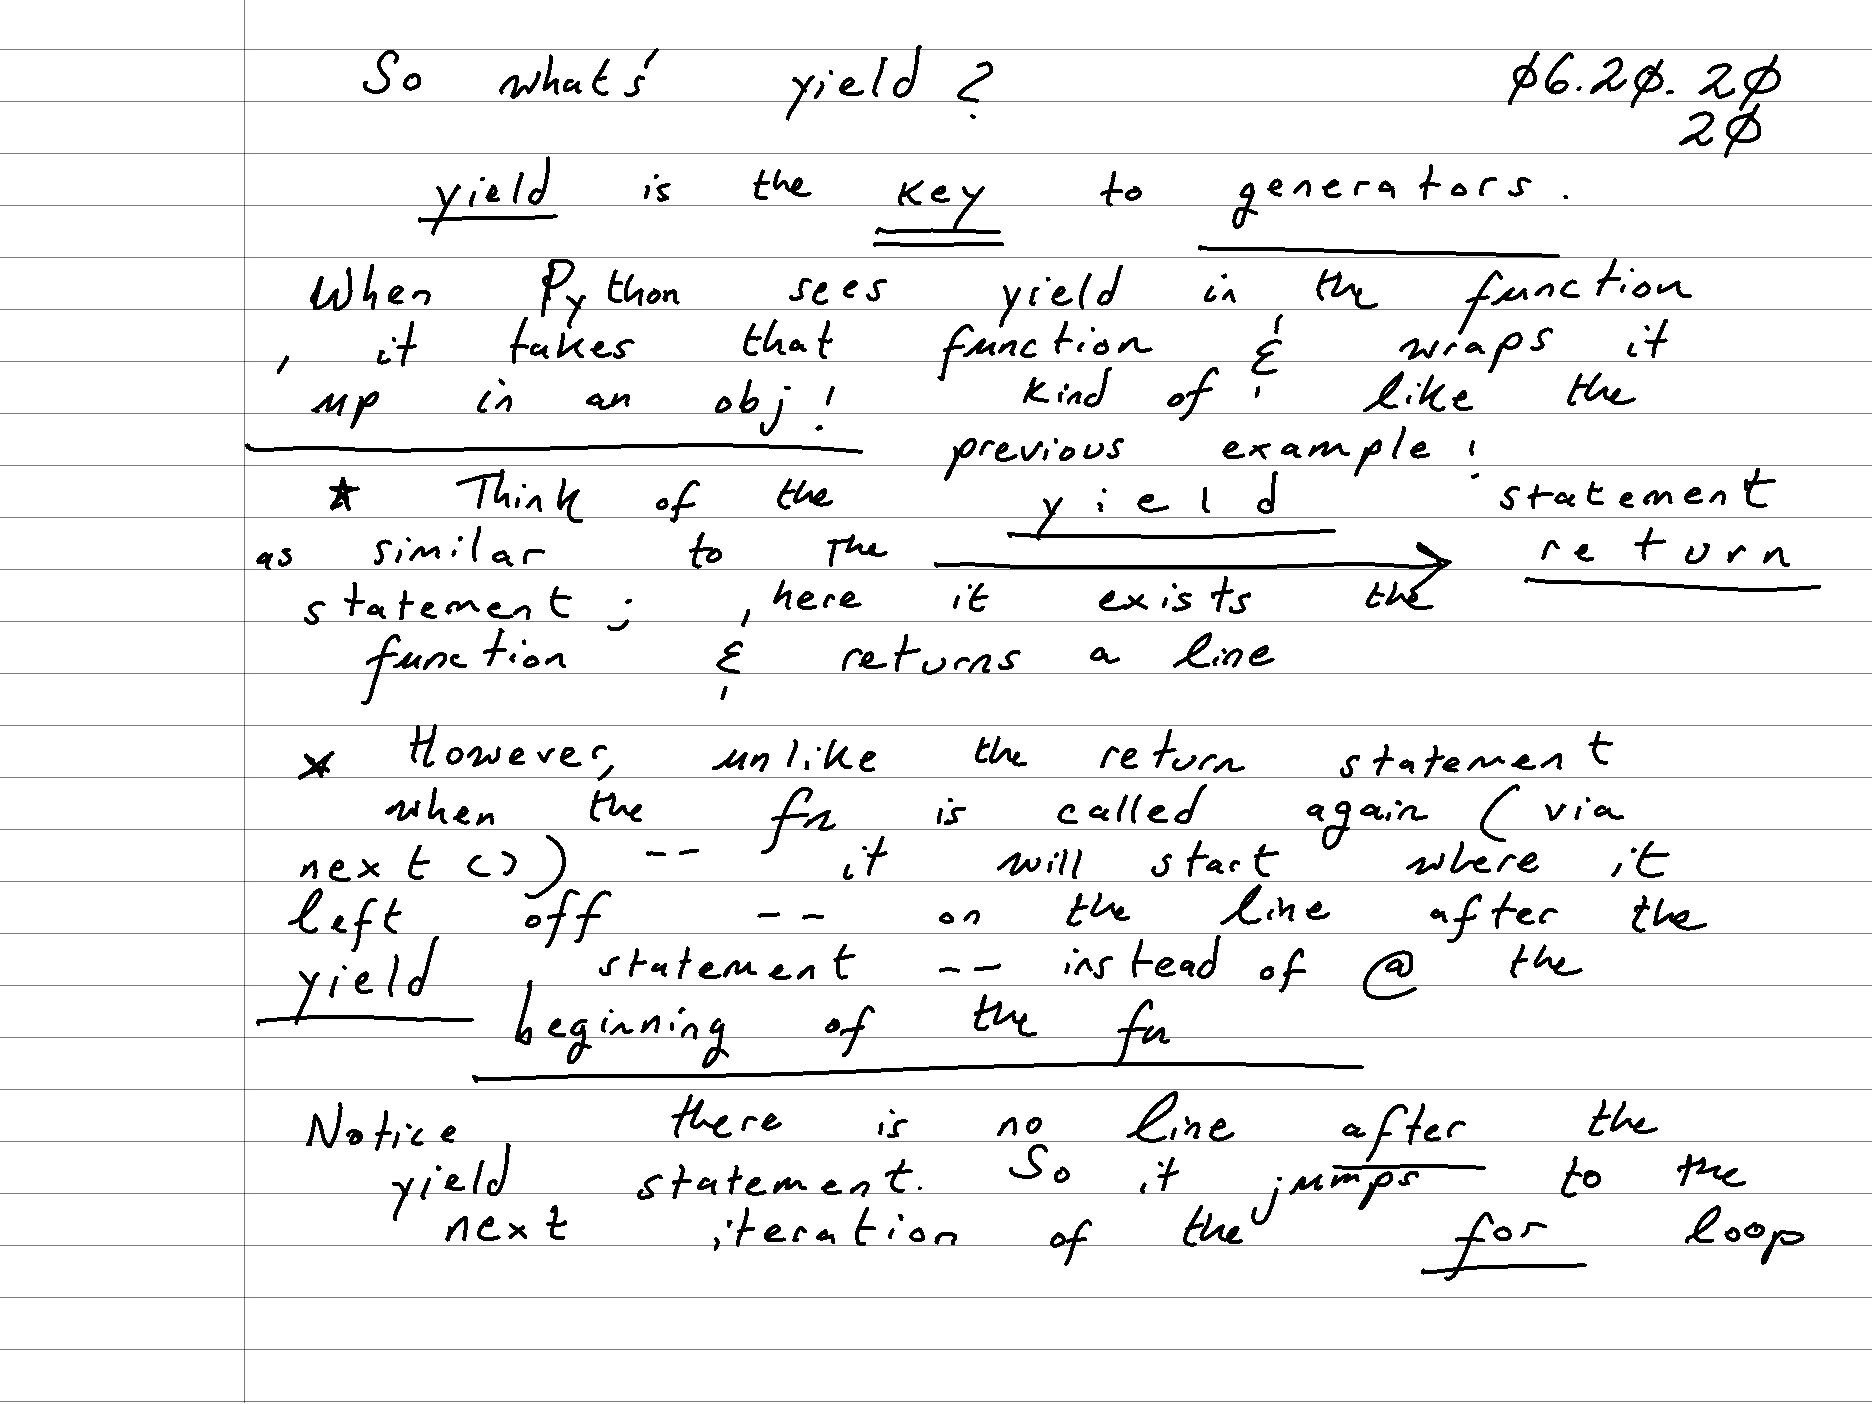 So what's yield? Ø6.2Ø.2Ø
2Ø
yield is the key to generators.
When Python sees yield in the function
, it takes that function & wraps it
up in an obj! kind of like the
previous example!
★ Think of the yield statement
as similar to the → return
statement; , here it exists the
function & returns a line
★ However, unlike the return statement
when the fn is called again (via
next()) -- it will start where it
left off -- on the line after the
yield statement -- instead of @ the
beginning of the fn
Notice there is no line after the
yield statement. So it jumps to the
next iteration of the for loop